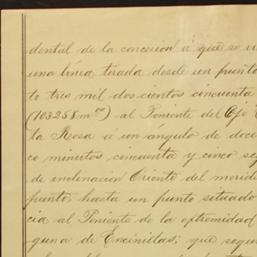 dental de la concesion á que se
una linea tirada desde un punto
to tres mil dos cientos cincuenta
(103258 m) al Poniente del Ojo
ta Rosa á un ángulo de doce
co minutos cincuenta y cinco se
de inclinacion Oriente del merid
punto hasta un punto situado
cia al Poniente de la extremidad
guna de Encinillas; que segu